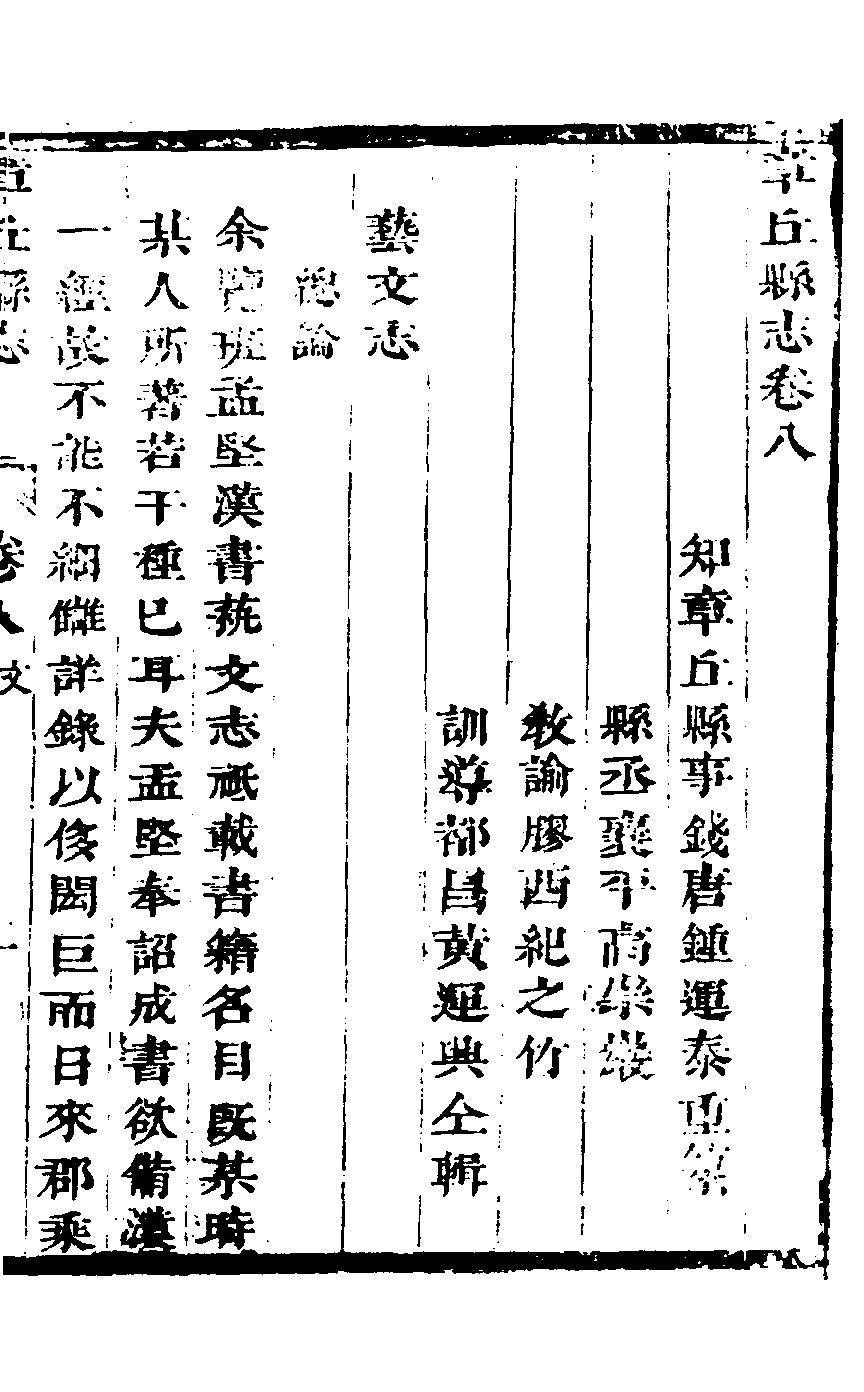 章丘縣志卷八
知章丘縣事錢唐鍾運泰重纂
縣丞襄平高崇巖
教諭膠西紀之竹
訓導都昌黃運興仝輯
藝文志
總論
余覽班孟堅漢書藝文志祇載書籍名目既某時
某人所著若干種已耳夫孟堅奉詔成書欲備漢
一經故不能不細讎詳錄以侈閎巨而日來郡乘
章丘縣志 卷八 文 一